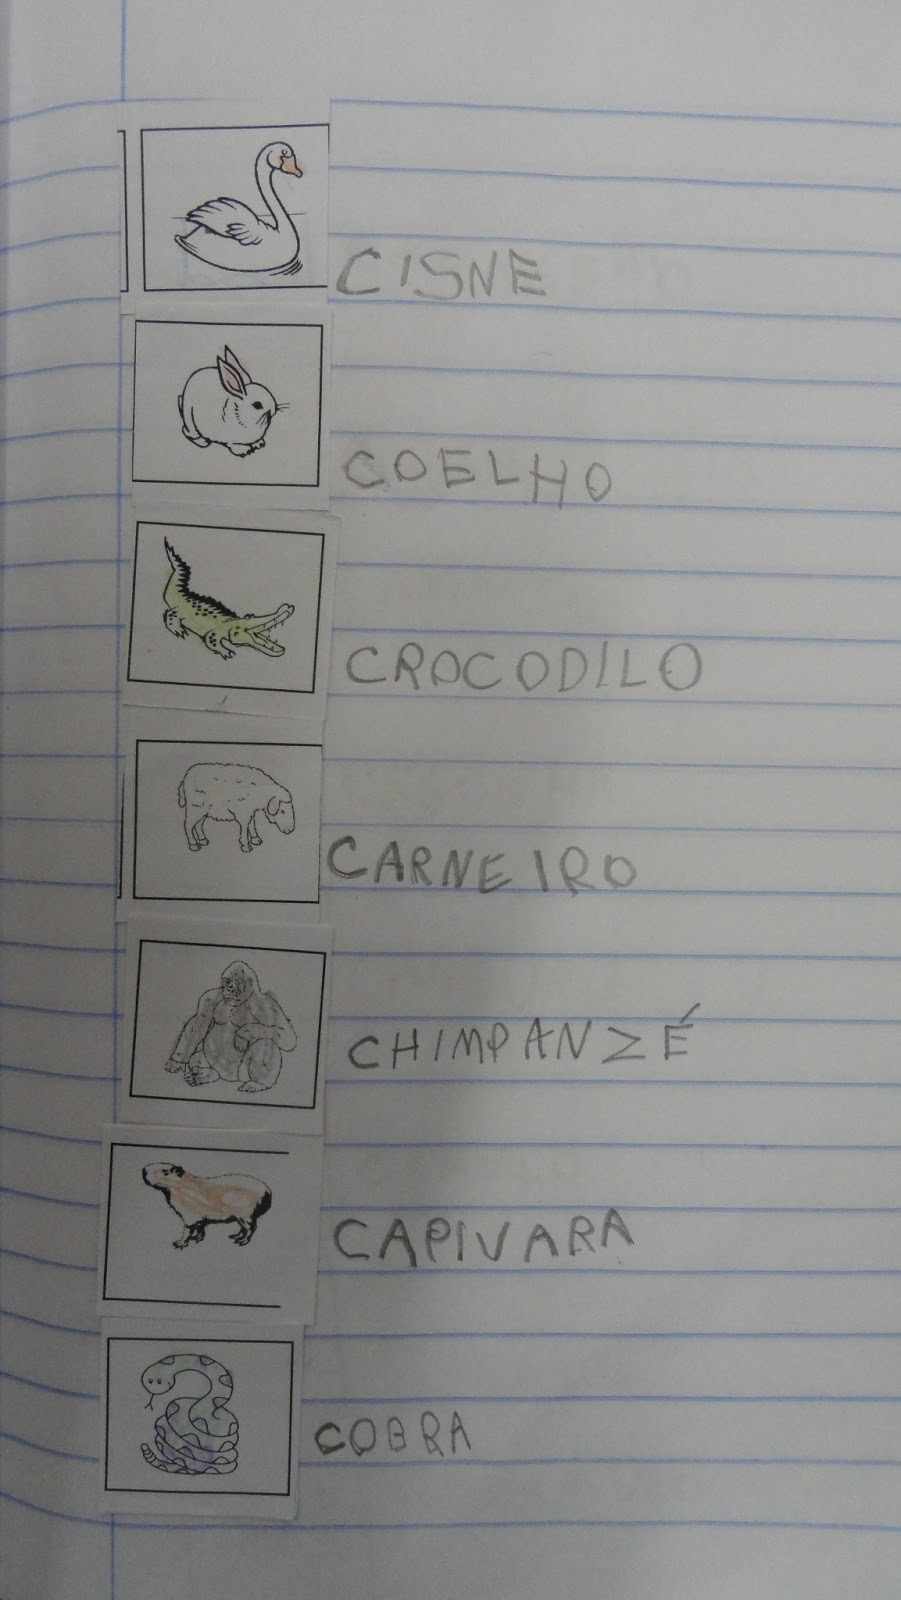 CISNE
COELHO
CROCODILO
CARNEIRO
CHIMPANZÉ
CAPIVARA
COBRA